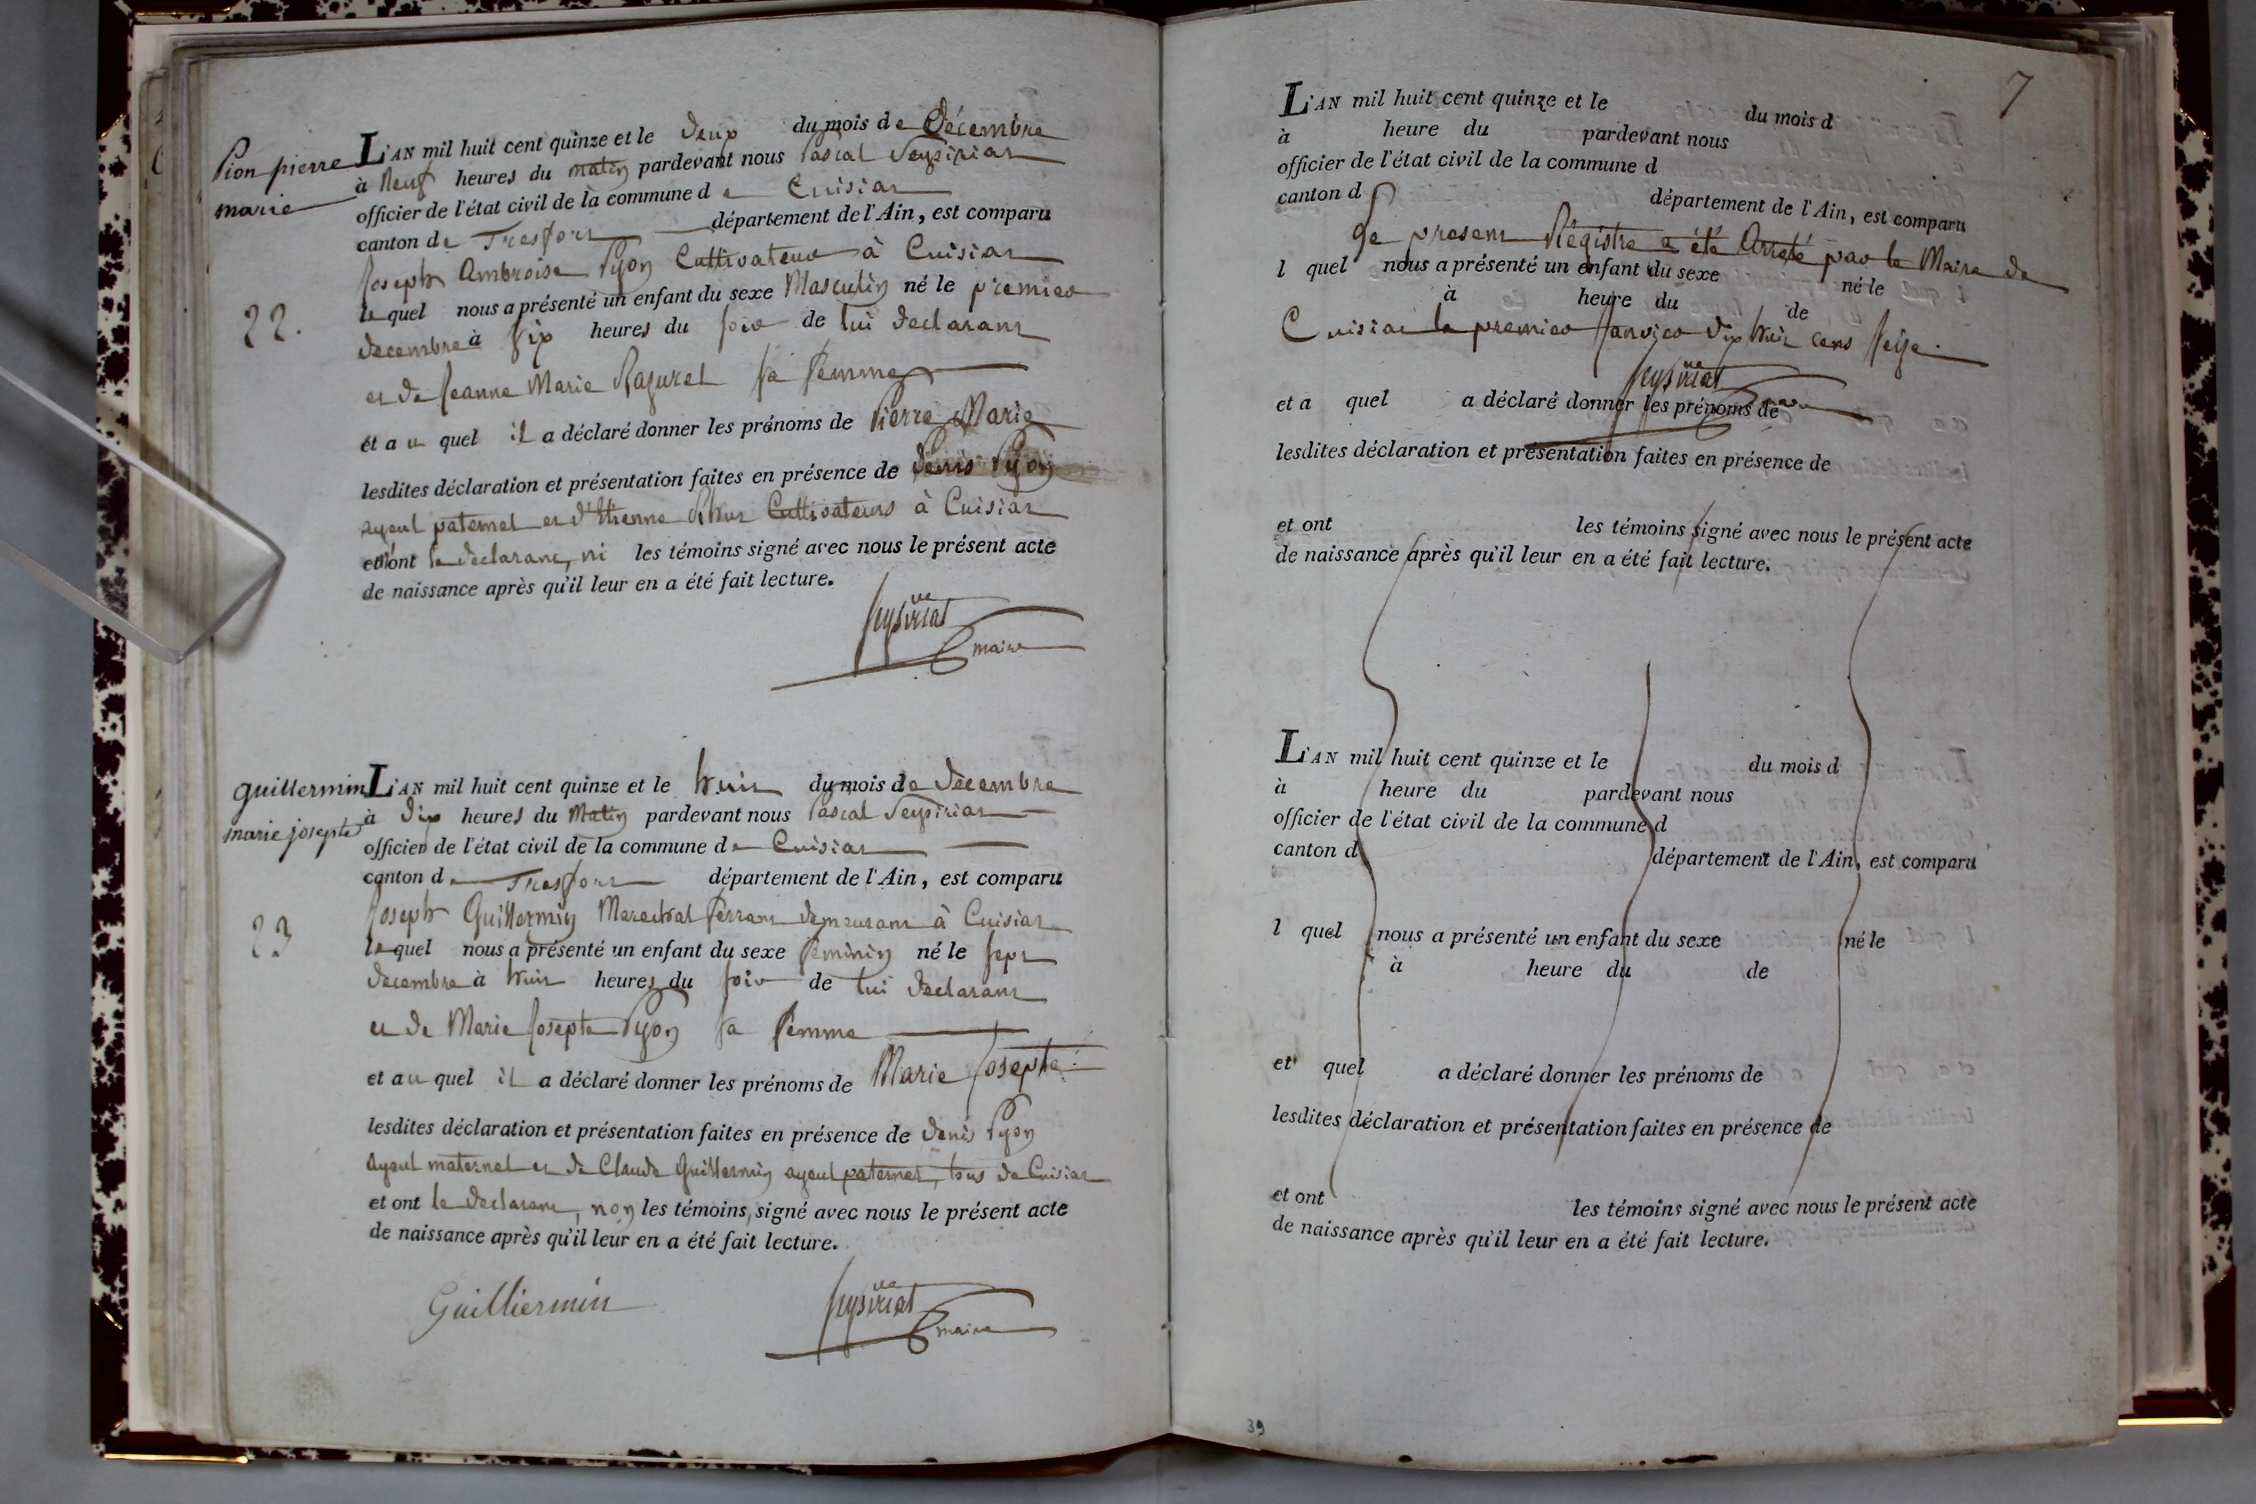 Pion pierre
marie
22.
L'AN mil huit cent quinze et le deux du mois de Décembre
à Neuf heures du matin pardevant nous Pascal Seysiriat
officier de l'état civil de la commune de Cuisiat
canton de Tresfort département de l'Ain, est comparu
Joseph Ambroise Pyon Cultivateur à Cuisiat
lequel nous a présenté un enfant du sexe Masculin né le premier
decembre à six heures du soir de lui declarant
et de Jeanne Marie Raguret sa femme
et au quel il a déclaré donner les prénoms de Pierre Marie
lesdites déclaration et présentation faites en présence de denis Pyon
ayeul paternel et d'Etienne Cultivateurs à Cuisiat
et ont le declarant, ni les témoins signé avec nous le présent acte
de naissance après qu'il leur en a été fait lecture.
Seysiriat
maire
guillermin
marie josephe
23
L'AN mil huit cent quinze et le huit du mois de décembre
à dix heures du Matin pardevant nous Pascal Seysiriat
officier de l'état civil de la commune de Cuisiat
canton de Tresfort département de l'Ain, est comparu
Joseph Guillermin Marechal ferrant demeurant à Cuisiat
lequel nous a présenté un enfant du sexe féminin né le sept
decembre à huit heures du soir de lui declarant
et de Marie Josephte Pyon sa femme
et au quel il a déclaré donner les prénoms de Marie Josephte
lesdites déclaration et présentation faites en présence de denis Pyon
ayeul maternel et de Claude Guillermin ayeul paternel, tous de Cuisiat
et ont le declarant, non les témoins, signé avec nous le présent acte
de naissance après qu'il leur en a été fait lecture.
Guilliermin
Seysiriat
maire
7
L'AN mil huit cent quinze et le du mois d
à heure du pardevant nous
officier de l'état civil de la commune d
canton d département de l'Ain, est comparu
Le present Régistre a été Arrêté par le Maire de
l quel nous a présenté un enfant du sexe né le
à heure du de
Cuisiat le premier Janvier dix huit cent seize.
Seysiriat
et a quel a déclaré donner les prénoms de
lesdites déclaration et présentation faites en présence de
et ont les témoins signé avec nous le présent acte
de naissance après qu'il leur en a été fait lecture.
L'AN mil huit cent quinze et le du mois d
à heure du pardevant nous
officier de l'état civil de la commune d
canton d département de l'Ain, est comparu
l quel nous a présenté un enfant du sexe né le
à heure du de
et quel a déclaré donner les prénoms de
lesdites déclaration et présentation faites en présence de
et ont les témoins signé avec nous le présent acte
de naissance après qu'il leur en a été fait lecture.
39